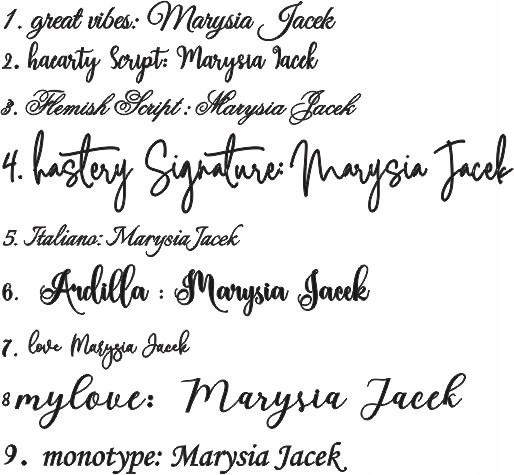 1. great vibes: Marysia Jacek
2. hacarty Script: Marysia Jacek
3. Flemish Script : Marysia Jacek
4. hastery Signature: Marysia Jacek
5. Italiano: Marysia Jacek
6. Ardilla : Marysia Jacek
7. love Marysia Jacek
8 mylove: Marysia Jacek
9. monotype: Marysia Jacek